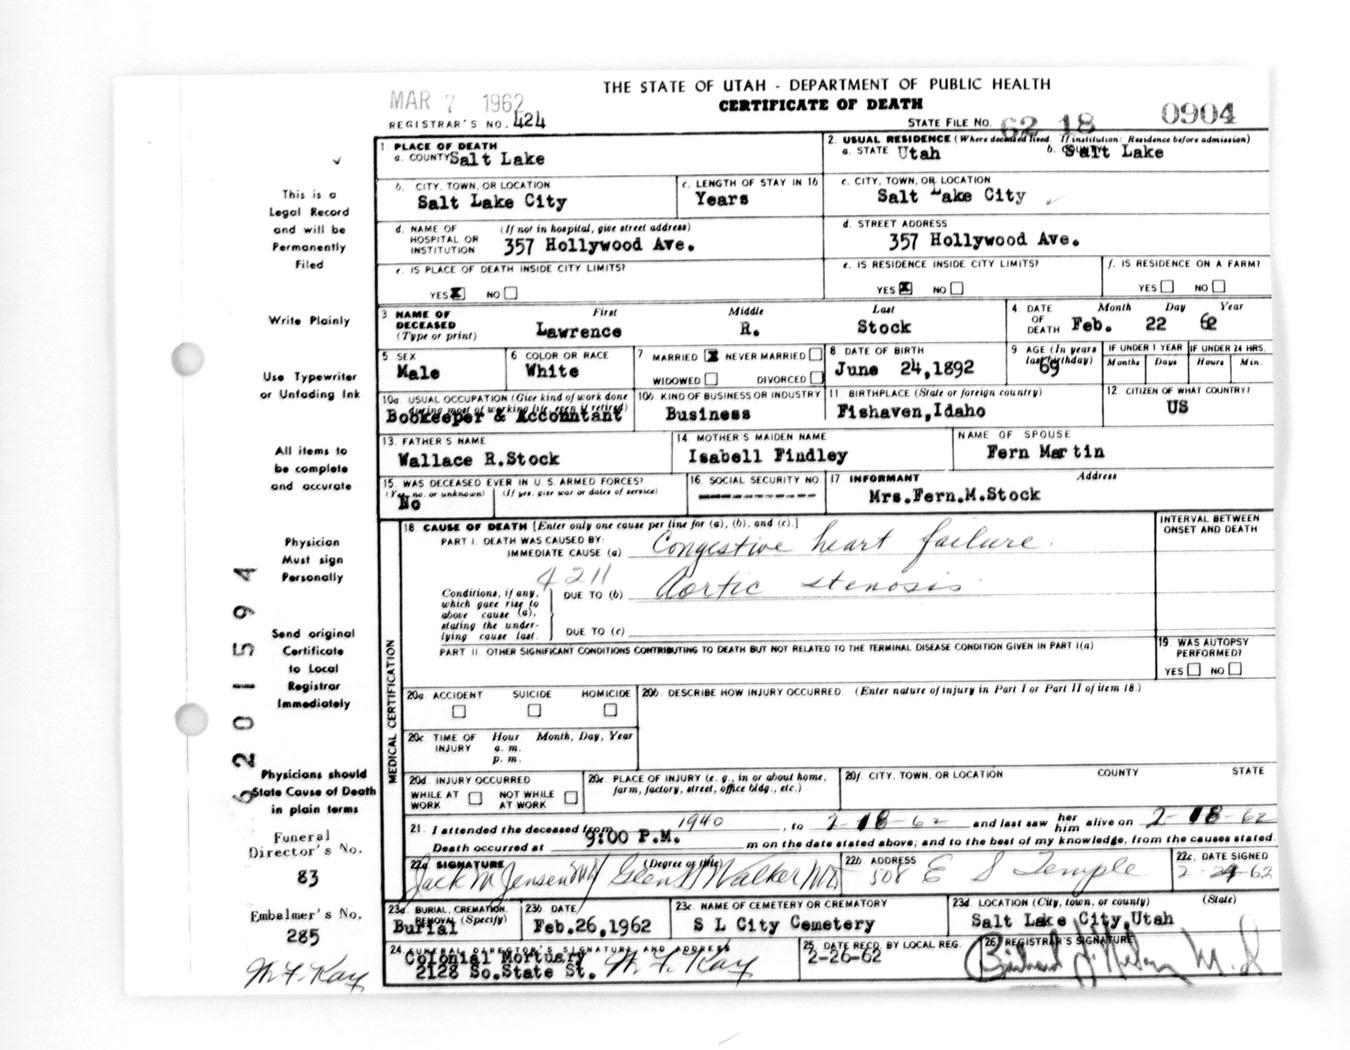 THE STATE OF UTAH - DEPARTMENT OF PUBLIC HEALTH
CERTIFICATE OF DEATH
MAR 7 1962
REGISTRAR'S NO. 424
STATE FILE NO. 62 18 0904
1. PLACE OF DEATH
a. COUNTY Salt Lake
2. USUAL RESIDENCE (Where deceased lived. If institution: Residence before admission)
a. STATE Utah b. Salt Lake
b. CITY, TOWN, OR LOCATION Salt Lake City
c. LENGTH OF STAY IN 1b Years
c. CITY, TOWN, OR LOCATION Salt Lake City
d. NAME OF HOSPITAL OR INSTITUTION (If not in hospital, give street address) 357 Hollywood Ave.
d. STREET ADDRESS 357 Hollywood Ave.
e. IS PLACE OF DEATH INSIDE CITY LIMITS?
YES X NO
e. IS RESIDENCE INSIDE CITY LIMITS?
YES X NO
f. IS RESIDENCE ON A FARM?
YES NO
3 NAME OF DECEASED (Type or print)
First Middle Last
Lawrence R. Stock
4. DATE OF DEATH Month Day Year
Feb. 22 62
5 SEX Male
6 COLOR OR RACE White
7 MARRIED X NEVER MARRIED
WIDOWED DIVORCED
8 DATE OF BIRTH June 24,1892
9 AGE (In years last birthday) 69
IF UNDER 1 YEAR Months Days
IF UNDER 24 HRS. Hours Min.
10a. USUAL OCCUPATION (Give kind of work done during most of working life, even if retired)
Bookeeper & Accountant
10b KIND OF BUSINESS OR INDUSTRY Business
11 BIRTHPLACE (State or foreign country) Fishaven,Idaho
12 CITIZEN OF WHAT COUNTRY? US
13. FATHER'S NAME Wallace R.Stock
14 MOTHER'S MAIDEN NAME Isabell Findley
NAME OF SPOUSE Fern Martin
15. WAS DECEASED EVER IN U.S. ARMED FORCES?
(Yes, no, or unknown) (If yes, give war or dates of service)
No
16 SOCIAL SECURITY NO. ------------
17 INFORMANT Address
Mrs.Fern.M.Stock
18. CAUSE OF DEATH [Enter only one cause per line for (a), (b), and (c).]
INTERVAL BETWEEN ONSET AND DEATH
PART I. DEATH WAS CAUSED BY:
IMMEDIATE CAUSE (a) Congestive heart failure.
4211
Conditions, if any, which gave rise to above cause (a), stating the underlying cause last.
DUE TO (b) Aortic stenosis
DUE TO (c)
PART II. OTHER SIGNIFICANT CONDITIONS CONTRIBUTING TO DEATH BUT NOT RELATED TO THE TERMINAL DISEASE CONDITION GIVEN IN PART I(a)
19. WAS AUTOPSY PERFORMED?
YES NO
MEDICAL CERTIFICATION
20a. ACCIDENT SUICIDE HOMICIDE
20b. DESCRIBE HOW INJURY OCCURRED. (Enter nature of injury in Part I or Part II of item 18.)
20c. TIME OF INJURY Hour Month, Day, Year
a. m.
p. m.
20d. INJURY OCCURRED
WHILE AT WORK NOT WHILE AT WORK
20e. PLACE OF INJURY (e. g., in or about home, farm, factory, street, office bldg., etc.)
20f. CITY, TOWN, OR LOCATION COUNTY STATE
21. I attended the deceased from 1940, to 2-18-62 and last saw her him alive on 2-18-62
Death occurred at 9:00 P.M. m on the date stated above; and to the best of my knowledge, from the causes stated.
22a. SIGNATURE (Degree or title)
Jack M Jensen MD/ Glen Walker MD
22b. ADDRESS 508 E S Temple
22c. DATE SIGNED 2-24-62
23a. BURIAL, CREMATION, REMOVAL (Specify) Burial
23b. DATE Feb.26,1962
23c. NAME OF CEMETERY OR CREMATORY S L City Cemetery
23d. LOCATION (City, town, or county) (State)
Salt Lake City,Utah
24. FUNERAL DIRECTOR'S SIGNATURE AND ADDRESS
Colonial Mortuary
2128 So.State St. W. F. Kay
25. DATE RECD. BY LOCAL REG. 2-26-62
26. REGISTRAR'S SIGNATURE
M.D
This is a
Legal Record
and will be
Permanently
Filed
Write Plainly
Use Typewriter
or Unfading Ink
All items to
be complete
and accurate
Physician
Must sign
Personally
Send original
Certificate
to Local
Registrar
Immediately
Physicians should
State Cause of Death
in plain terms
Funeral
Director's No.
83
Embalmer's No.
285
W. F. Kay
6201594